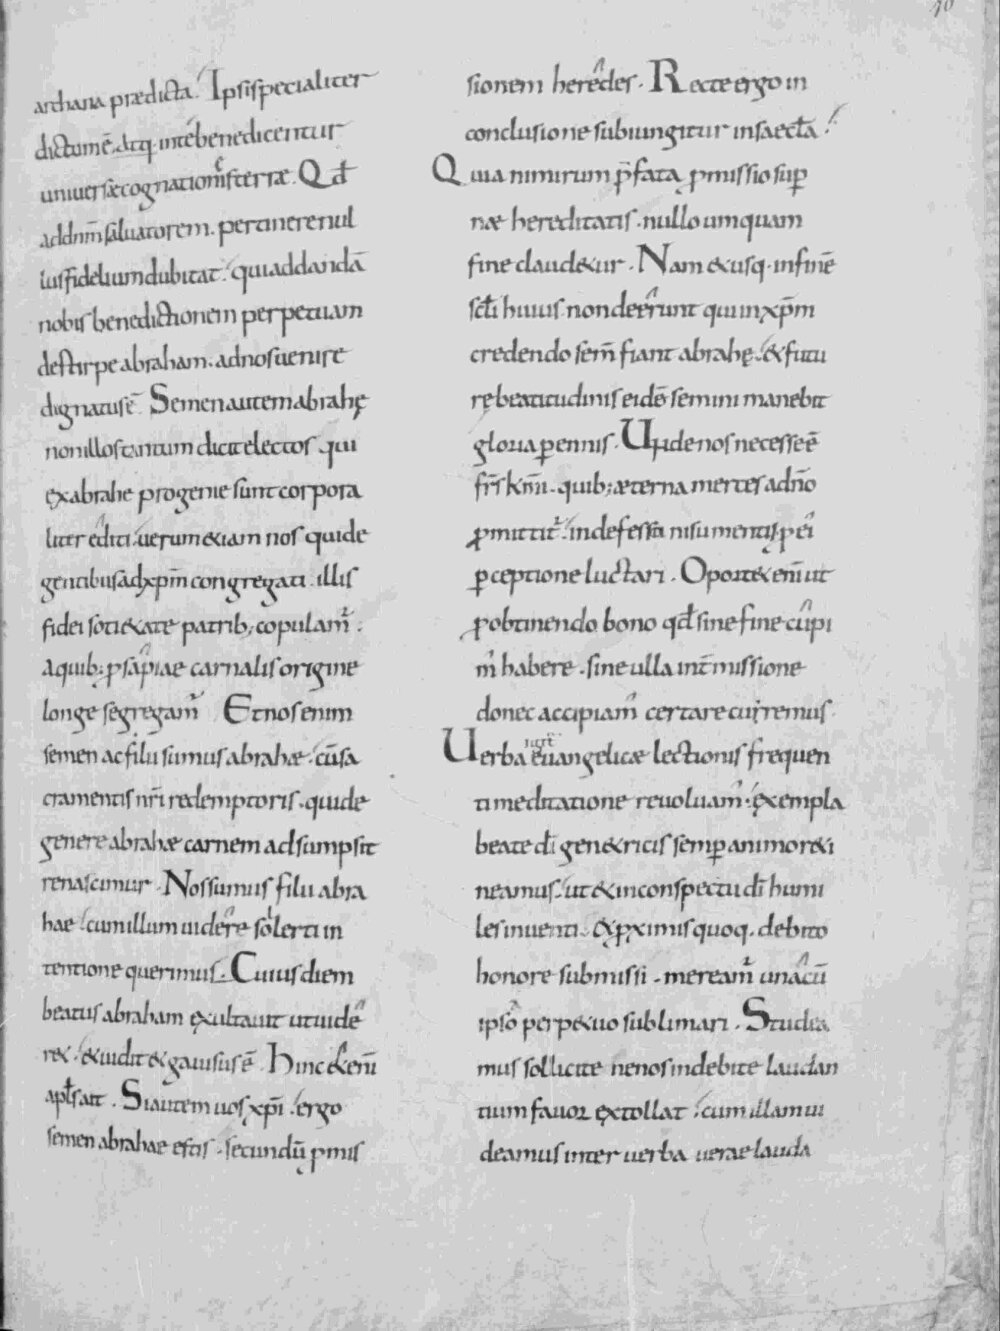 40
archana prædicta. Ipsi specialiter
dictum ē. Atq. in te benedicentur
universæ cognationes terræ. Qd̄
ad dnm̄ salvatorem. pertinere nul
lus fidelium dubitat. qui ad dandā
nobis benedictionem perpetuam
de stirpe abraham. ad nos uenire
dignatus ē. Semen autem abrahę
non illos tantum dicit electos qui
ex abrahe progenie sunt corpora
liter editi. uerum & iam nos qui de
gentibus ad xp̄m congregati. illis
fidei sotietate patrib; copulam̄.
A quib; ꝓsapiae carnalis origine
longe segregam̄. Et nos enim
semen ac filii sumus abrahæ. cū sa
cramentis nr̄i redemptoris. qui de
genere abrahæ carnem adsumpsit
renascimur. Nos sumus filii abra
hae. cum illum uidere sollerti in
tentione querimus. Cuius diem
beatus abraham exultauit ut uide
r&. & uidit & gauisus ē. Hinc & enī
apl̄s ait. Si autem uos xp̄i. ergo
semen abrahae estis. secundū ꝓmis
sionem heredes. Recte ergo in
conclusione subiungitur in saecl̄a.
Quia nimirum p̄fata ꝓmissio suꝑ
næ hereditatis. nullo umquam
fine claud&ur. Nam & usq. in finē
scl̄i huius non deerunt qui in xp̄m
credendo sem̄ fiant abrahę. & futu
rę beatitudinis eidē semini manebit
gloria ꝑennis. Unde nos necesse ē
fr̄s km̄i. quib; æterna merces a dn̄o
ꝓmittit. indefessa nisu mentis ꝓ ei
ꝑceptione luctari. Oport& enī ut
ꝓ obtinendo bono qd̄ sine fine cupi
m̄ habere. sine ulla int̄missione
donec accipiam̄ certare curremus
Uerba euangelicae lectionis frequen
ti meditatione reuoluam̄. exempla
beate dī gen&ricis semꝑ animo r&i
neamus. ut & in conspectu dī humi
les inuenti. & ꝓximis quoq. debito
honore submissi. meream̄ una cū
ipso perp&uo sublimari. Studea
mus sollicite ne nos indebite laudan
tium fauor extollat. cum illam ui
deamus inter uerba uerae lauda